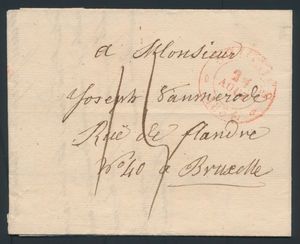 a Monsieur
Joseph Vanmerode
Rue de flandre
N° 40 a Bruxelle
24
AOUT